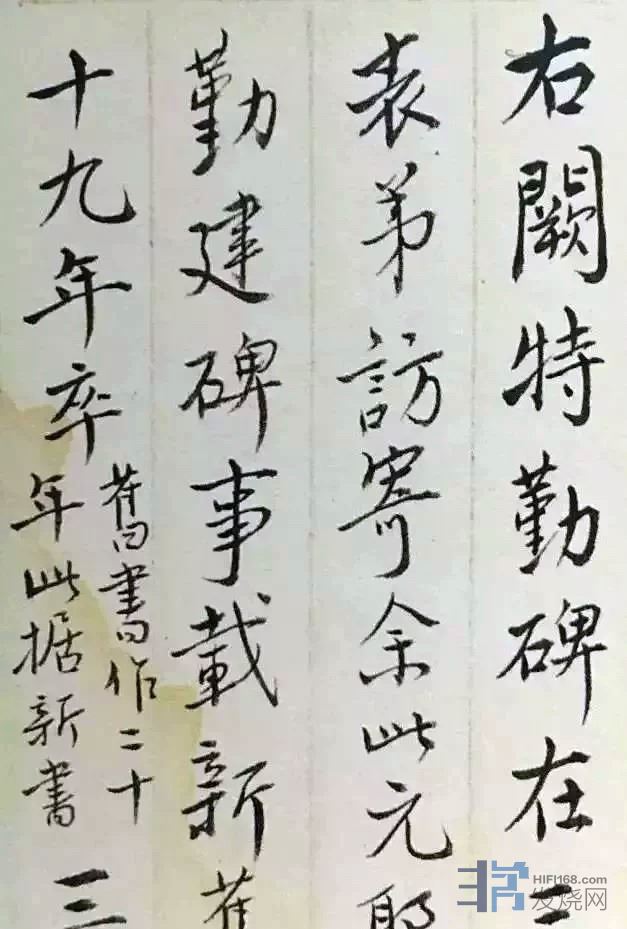 右闕特勤碑在二
表弟訪寄余此元
勤建碑事載新舊
十九年卒
舊書作二十
年此据新書
三
HIFI168.com
发烧网